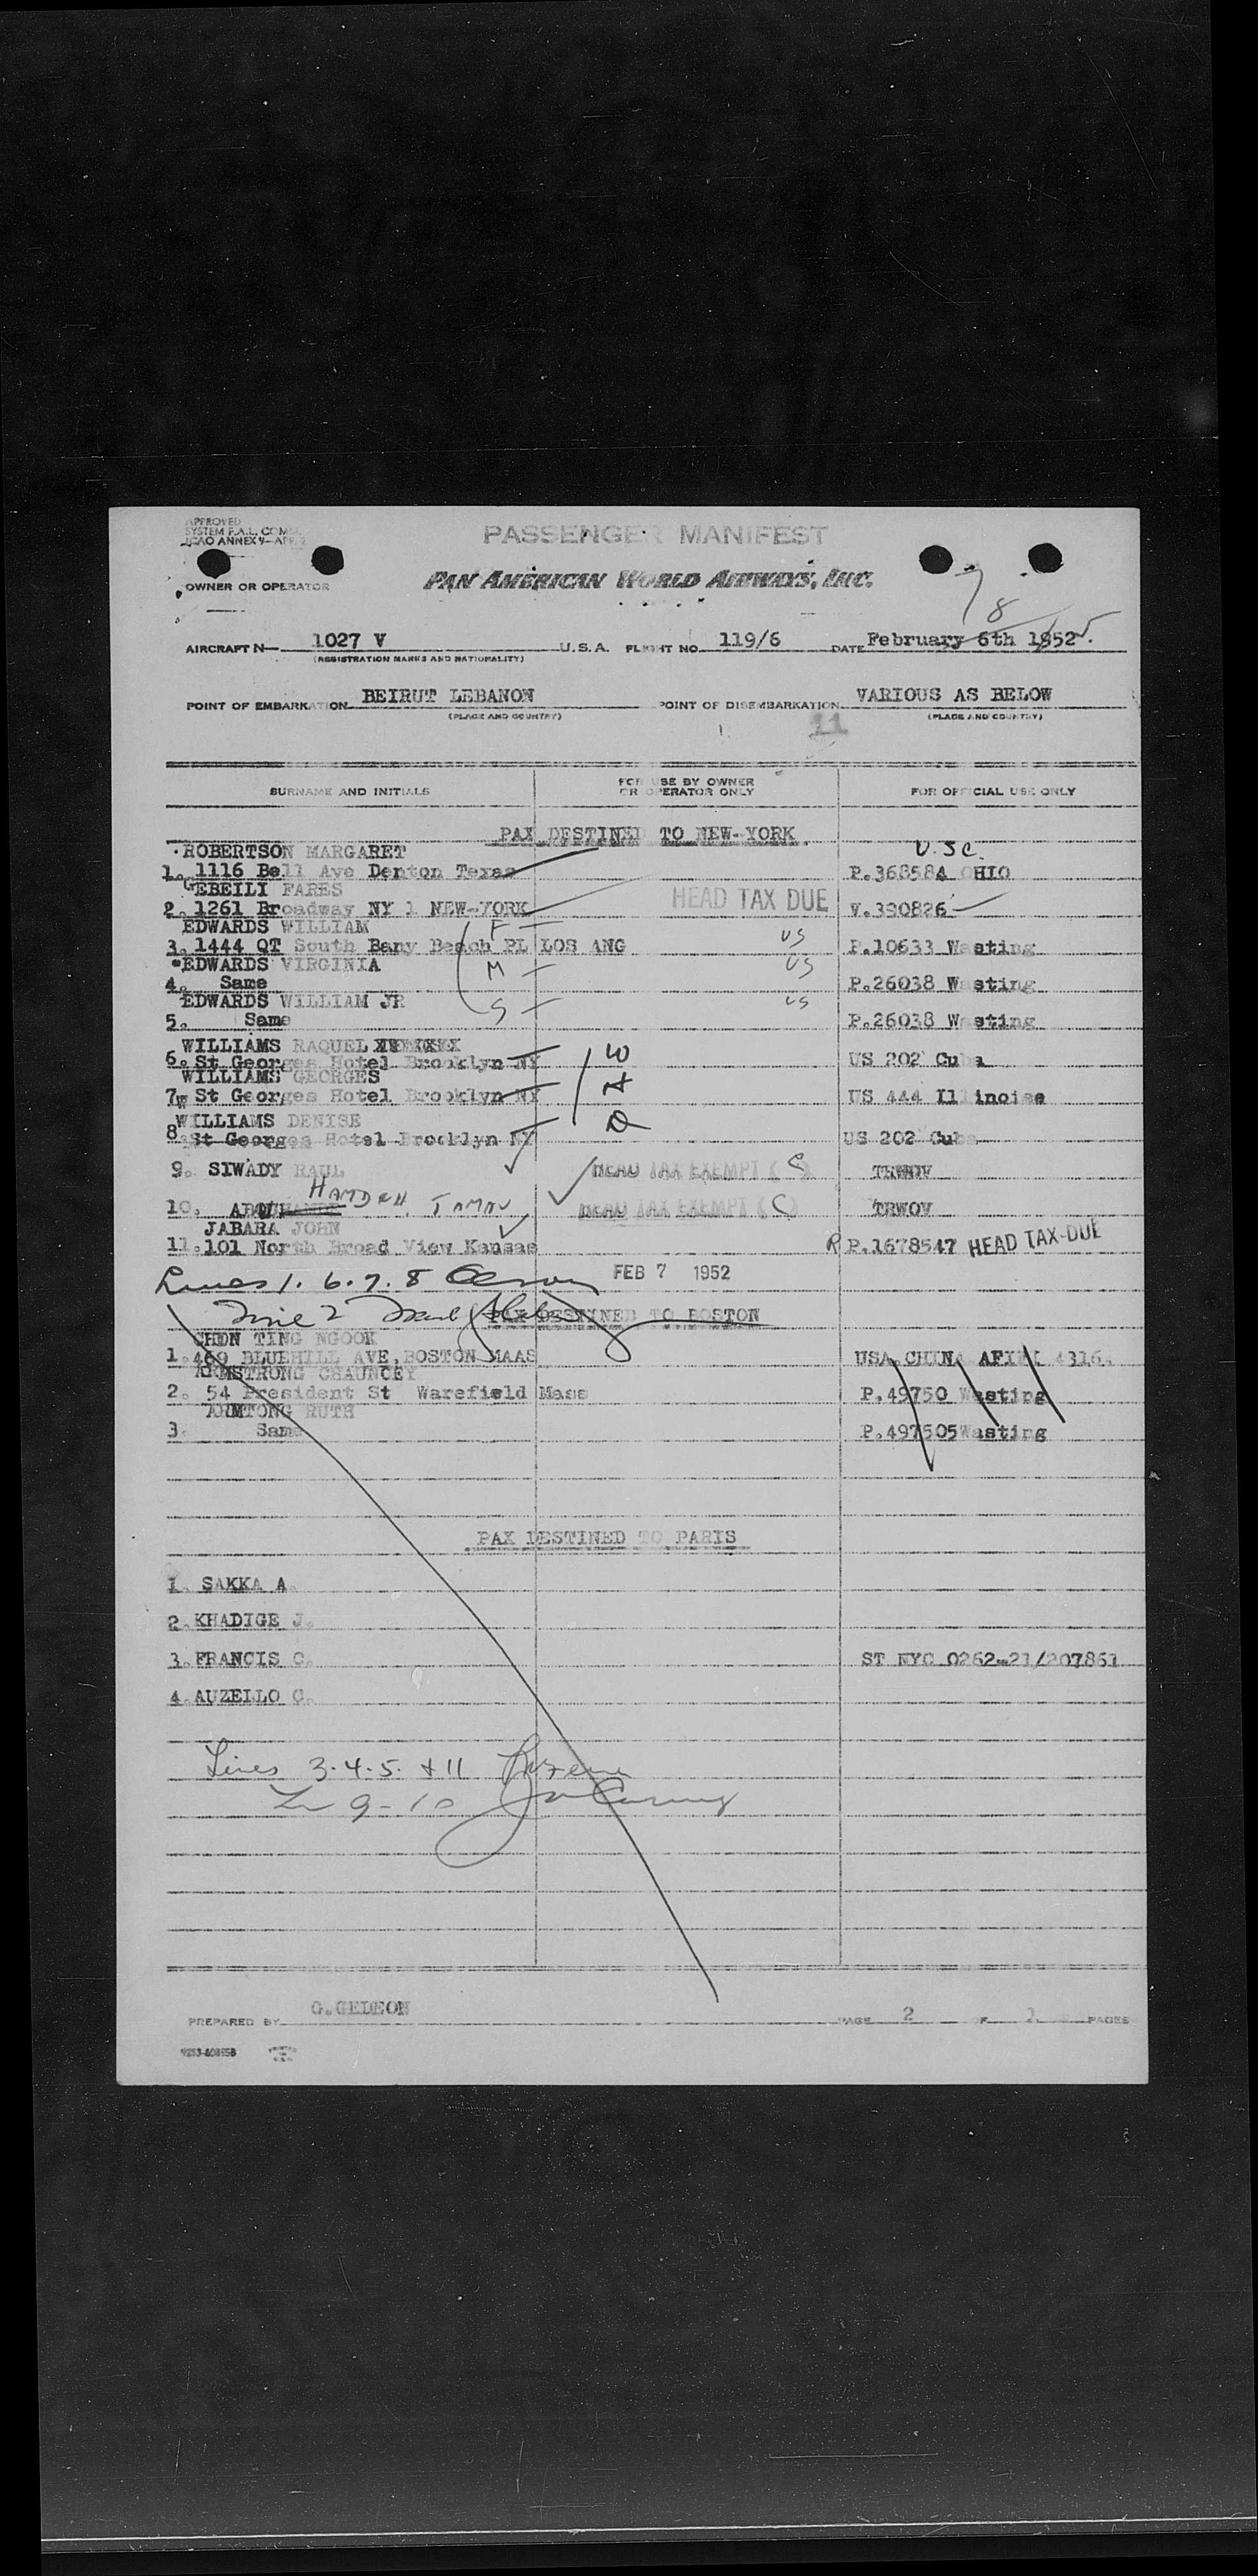 APPROVED
SYSTEM F.A.L. COM
ICAO ANNEX 9-
PASSENGER MANIFEST
OWNER OR OPERATOR
PAN AMERICAN WORLD AIRWAYS, INC.
AIRCRAFT N 1027 V U.S.A. FLIGHT NO. 119/6 DATE February 6th 1952.
(REGISTRATION MARKS AND NATIONALITY)
POINT OF EMBARKATION BEIRUT LEBANON POINT OF DISEMBARKATION VARIOUS AS BELOW
(PLACE AND COUNTRY) (PLACE AND COUNTRY)
11
SURNAME AND INITIALS FOR USE BY OWNER OR OPERATOR ONLY FOR OFFICIAL USE ONLY
PAX DESTINED TO NEW-YORK
ROBERTSON MARGARET U.S.C.
1. 1116 Bell Ave Denton Texas P.36858A OHIO
GEBEILI FARES
2. 1261 Broadway NY 1 NEW-YORK HEAD TAX DUE V.390826
EDWARDS WILLIAM F
3. 1444 QT South Bany Beach PL LOS ANG US P.10633 Wasting
EDWARDS VIRGINIA M US
4. Same P.26038 Wasting
EDWARDS WILLIAM JR S US
5. Same P.26038 Wasting
WILLIAMS RAQUEL
6. St Georges Hotel Brooklyn NY W US 202 Cuba
WILLIAMS GEORGES
7. St Georges Hotel Brooklyn NY H US 444 Illinoise
WILLIAMS DENISE
8. St Georges Hotel Brooklyn NY D US 202 Cuba
9. SIWADY RAUL HEAD TAX EXEMPT (C) TRWOV
10. HAMDAH. HEAD TAX EXEMPT (C) TRWOV
JABARA JOHN
11. 101 North Broad View Kansas P.1678547 HEAD TAX DUE
Lines 1. 6. 7. 8 FEB 7 1952
Line 2 PAX DESTINED TO BOSTON
CHON TING NGOOK
1. 469 BLUEHILL AVE, BOSTON MAAS USA CHINA 4316.
ARMSTRONG CHAUNCEY
2. 54 President St Warefield Mass P.49750 Wasting
ARMTONG RUTH
3. Same P.497505 Wasting
PAX DESTINED TO PARIS
1. SAKKA A.
2. KHADIGE J.
3. FRANCIS C. ST NYC 0262-21/207861
4. AUZELLO C.
Lines 3. 4. 5. + 11
9-10
PREPARED BY G.GEDEON PAGE 2 OF PAGES